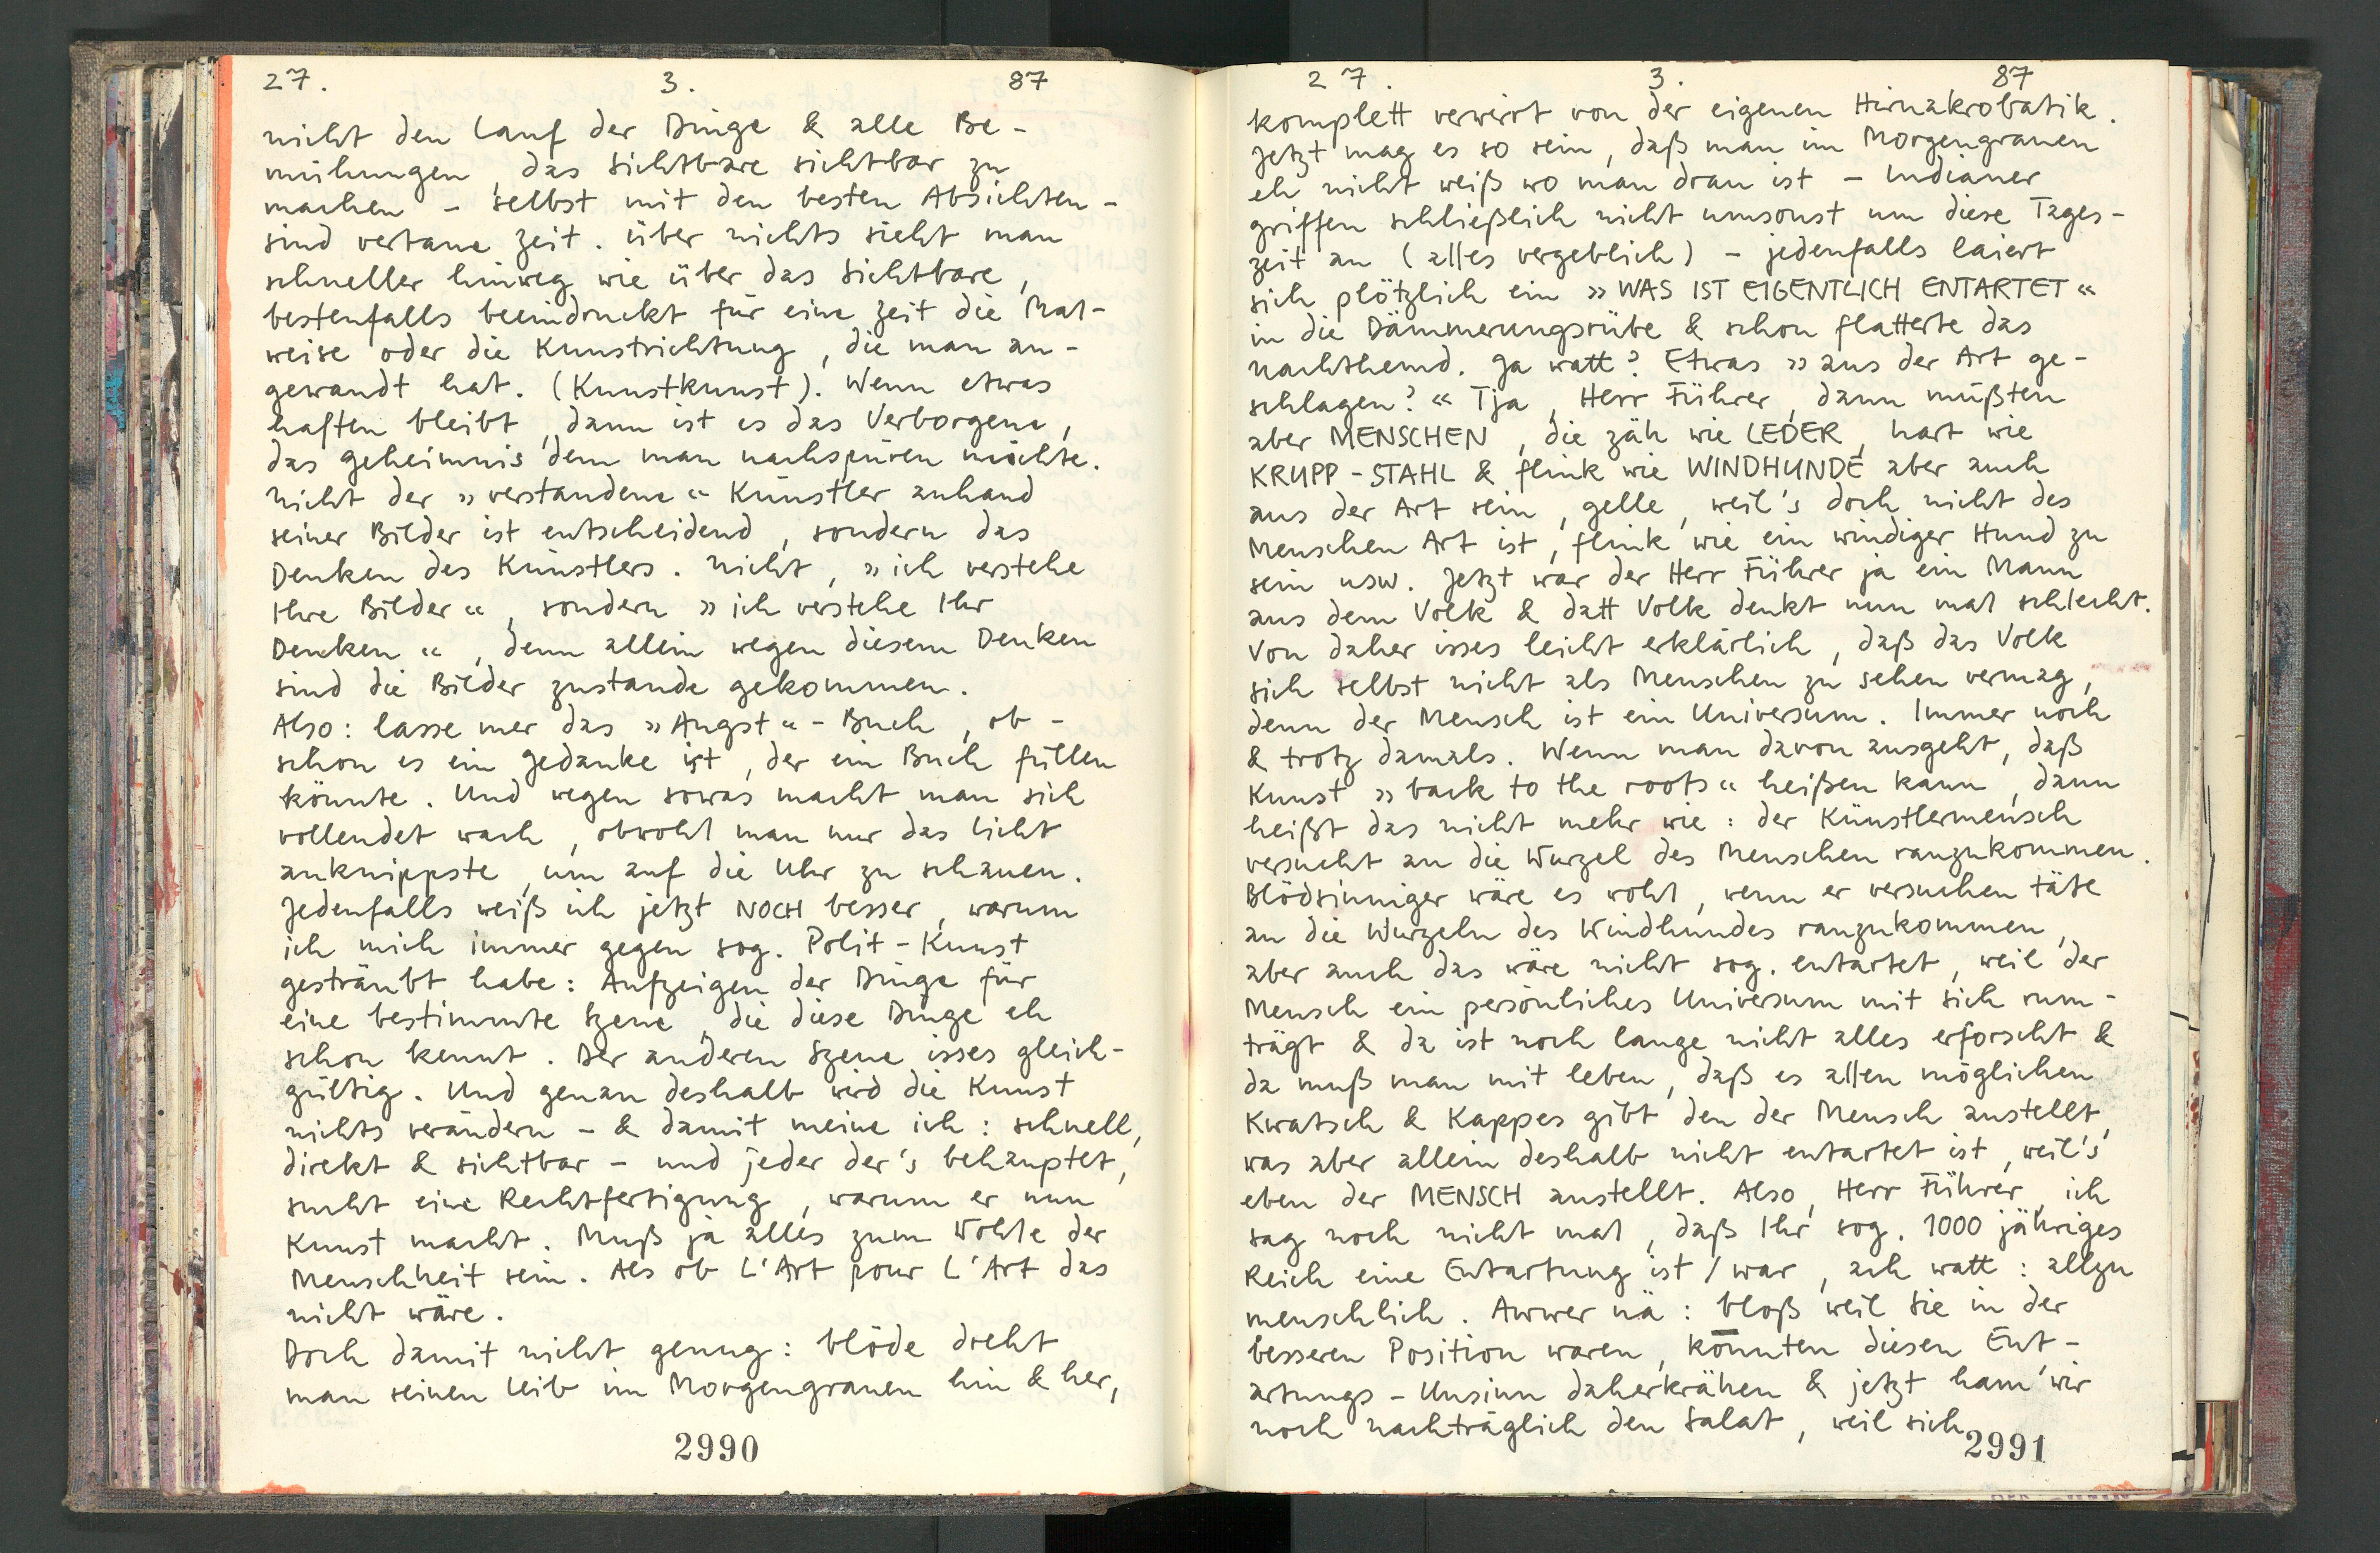 27. 3. 87
nicht den Lauf der Dinge & alle Be-
mühungen, das Sichtbare sichtbar zu
machen - selbst mit den besten Absichten -
sind vertane Zeit. Über nichts sieht man
schneller hinweg wie über das Sichtbare,
bestenfalls beeindruckt für eine Zeit die Mal-
weise oder die Kunstrichtung, die man an-
gewandt hat. (Kunstkunst). Wenn etwas
haften bleibt, dann ist es das Verborgene,
das Geheimnis dem man nachspüren möchte.
Nicht der »verstandene« Künstler anhand
seiner Bilder ist entscheidend, sondern das
Denken des Künstlers. Nicht, »ich verstehe
Ihre Bilder«, sondern »ich verstehe Ihr
Denken«, denn allein wegen diesem Denken
sind die Bilder zustande gekommen.
Also: lasse mer das »Angst«-Buch, ob-
schon es ein Gedanke ist, der ein Buch füllen
könnte. Und wegen sowas macht man sich
vollendet wach, obwohl man nur das Licht
anknippste, um auf die Uhr zu schauen.
Jedenfalls weiß ich jetzt NOCH besser, warum
ich mich immer gegen sog. Polit-Kunst
gesträubt habe: Aufzeigen der Dinge für
eine bestimmte Szene, die diese Dinge eh
schon kennt. Der anderen Szene isses gleich-
gültig. Und genau deshalb wird die Kunst
nichts verändern - & damit meine ich: schnell,
direkt & sichtbar - und jeder der's behauptet,
sucht eine Rechtfertigung, warum er nun
Kunst macht. Muß ja alles zum Wohle der
Menschheit sein. Als ob L'Art pour L'Art das
nicht wäre.
Doch damit nicht genug: blöde dreht
man seinen Leib im Morgengrauen hin & her,
2990
27. 3. 87
komplett verwirrt von der eigenen Hirnakrobatik.
Jetzt mag es so sein, daß man im Morgengrauen
eh nicht weiß wo man dran ist - Indianer
griffen schließlich nicht umsonst um diese Tages-
zeit an (alles vergeblich) - jedenfalls laiert
sich plötzlich ein »WAS IST EIGENTLICH ENTARTET«
in die Dämmerungsrübe & schon flatterte das
Nachthemd. Ja watt? Etwas »aus der Art ge-
schlagen?« Tja, Herr Führer, dann müßten
aber MENSCHEN, die zäh wie LEDER, hart wie
KRUPP-STAHL & flink wie WINDHUNDE aber auch
aus der Art sein, gelle, weil's doch nicht des
Menschen Art ist, flink wie ein windiger Hund zu
sein usw. Jetzt war der Herr Führer ja ein Mann
aus dem Volk & datt Volk denkt nun mal schlecht.
Von daher isses leicht erklärlich, daß das Volk
sich selbst nicht als Menschen zu sehen vermag,
denn der Mensch ist ein Universum. Immer noch
& trotz damals. Wenn man davon ausgeht, daß
Kunst »back to the roots« heißen kann, dann
heißt das nicht mehr wie: der Künstlermensch
versucht an die Wurzel des Menschen ranzukommen.
Blödsinniger wäre es wohl, wenn er versuchen täte
an die Wurzeln des Windhundes ranzukommen,
aber auch das wäre nicht sog. entartet, weil der
Mensch ein persönliches Universum mit sich rum-
trägt & da ist noch lange nicht alles erforscht &
da muß man mit leben, daß es allen möglichen
Kwatsch & Kappes gibt den der Mensch anstellt,
was aber allein deshalb nicht entartet ist, weil's
eben der MENSCH anstellt. Also, Herr Führer, ich
sag noch nicht mal, daß Ihr sog. 1000 jähriges
Reich eine Entartung ist/war, ach watt: allzu
menschlich. Awwer nä: bloß weil Sie in der
besseren Position waren, konnten diesen Ent-
artungs-Unsinn daherkrähen & jetzt ham'wir
noch nachträglich den Salat, weil sich
2991